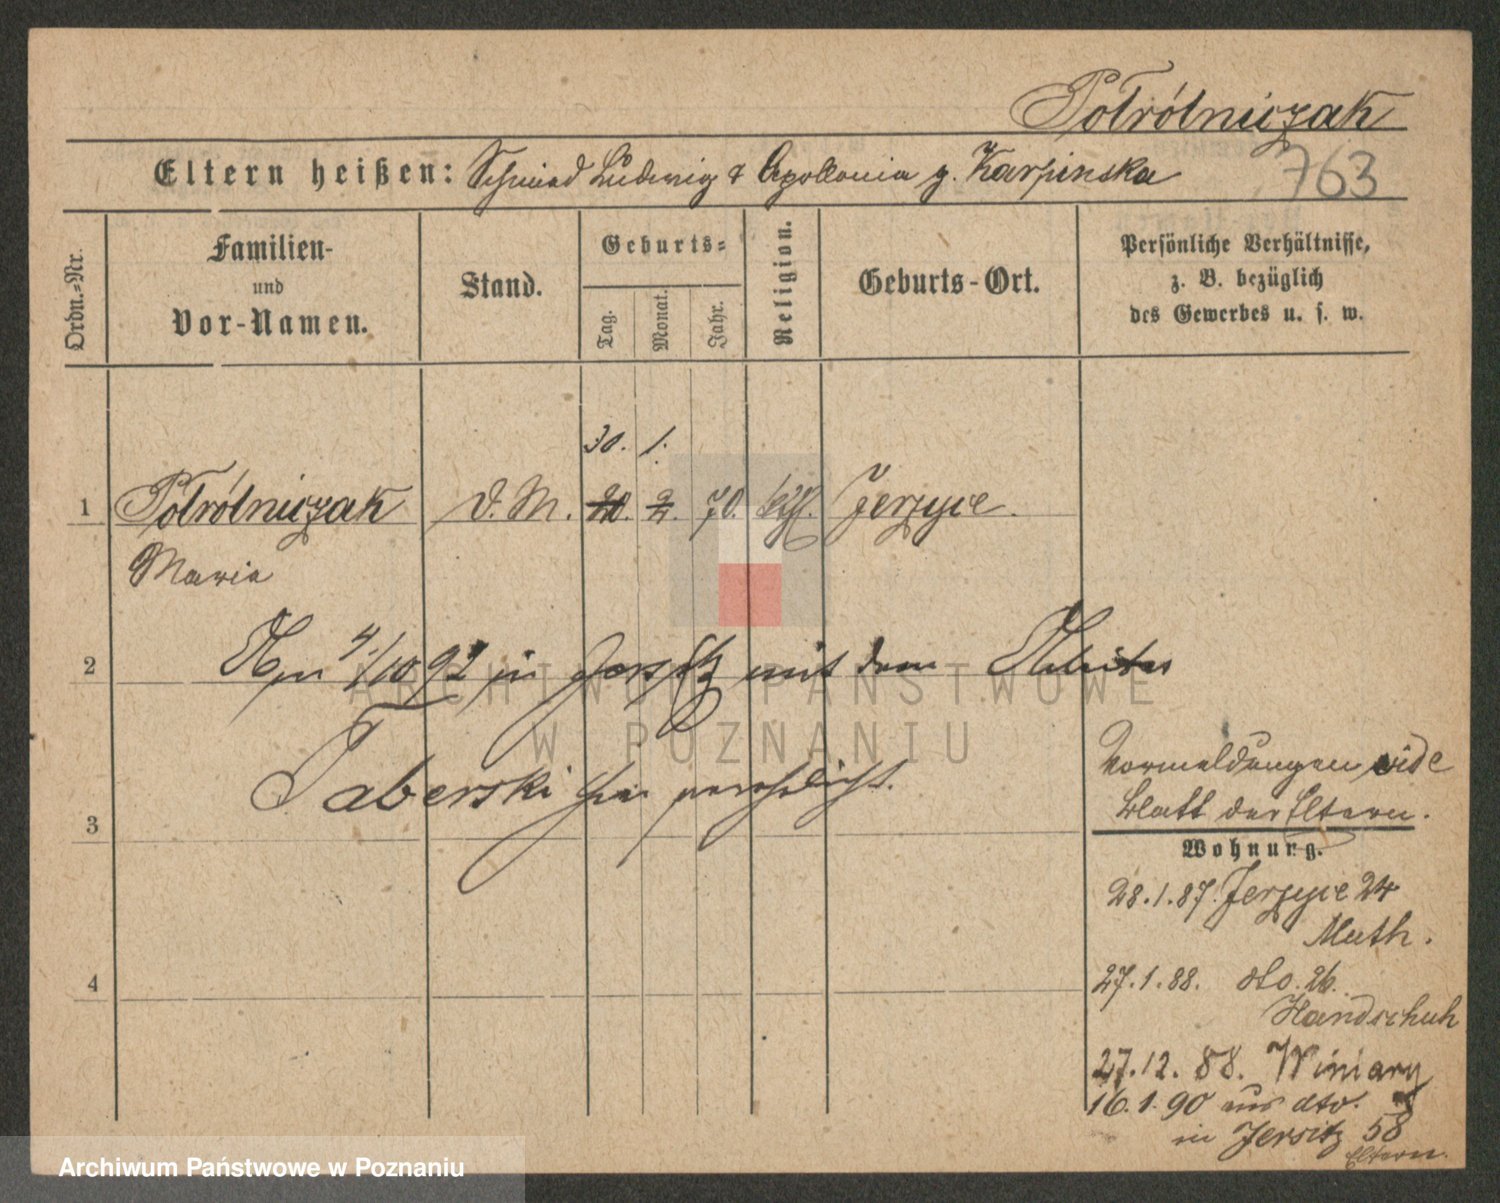 Potrólniczak
Eltern heißen: Schmied Ludwig & Apollonia g. Karpinska
763
Ordn.-Nr.
Familien-
und
Vor-Namen.
Stand.
Geburts-
Tag.
Monat.
Jahr.
Religion.
Geburts-Ort.
Persönliche Verhältnisse,
z. B. bezüglich
des Gewerbes u. s. w.
30. 1.
1 Potrólniczak D. M. 20. 2. 70. kth. Jerzyce.
Maria
2 Am 4/10 92 in Jersitz mit dem Arbeiter
Taberski hier verehelicht.
3
4
Vormeldungen vide
Blatt der Eltern.
Wohnung.
28.1.87. Jerzyce 24
Muth.
27.1.88. dto. 26.
Handschuh
27.12.88. Winiary
16.1.90 aus dto.
in Jersitz 58
Eltern.
ARCHIWUM PAŃSTWOWE
W POZNANIU
Archiwum Państwowe w Poznaniu